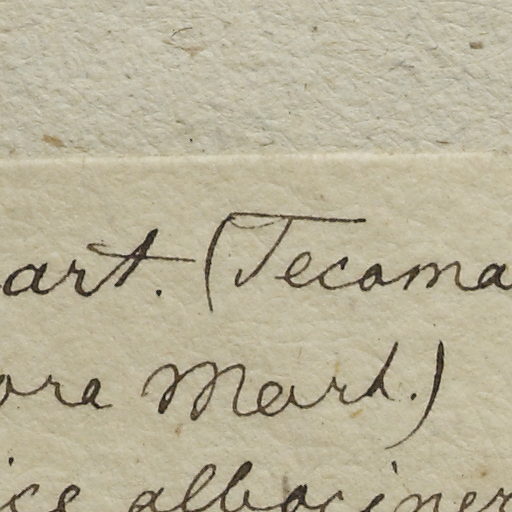 art. (Tecoma
ora Mart.)
ics albociner